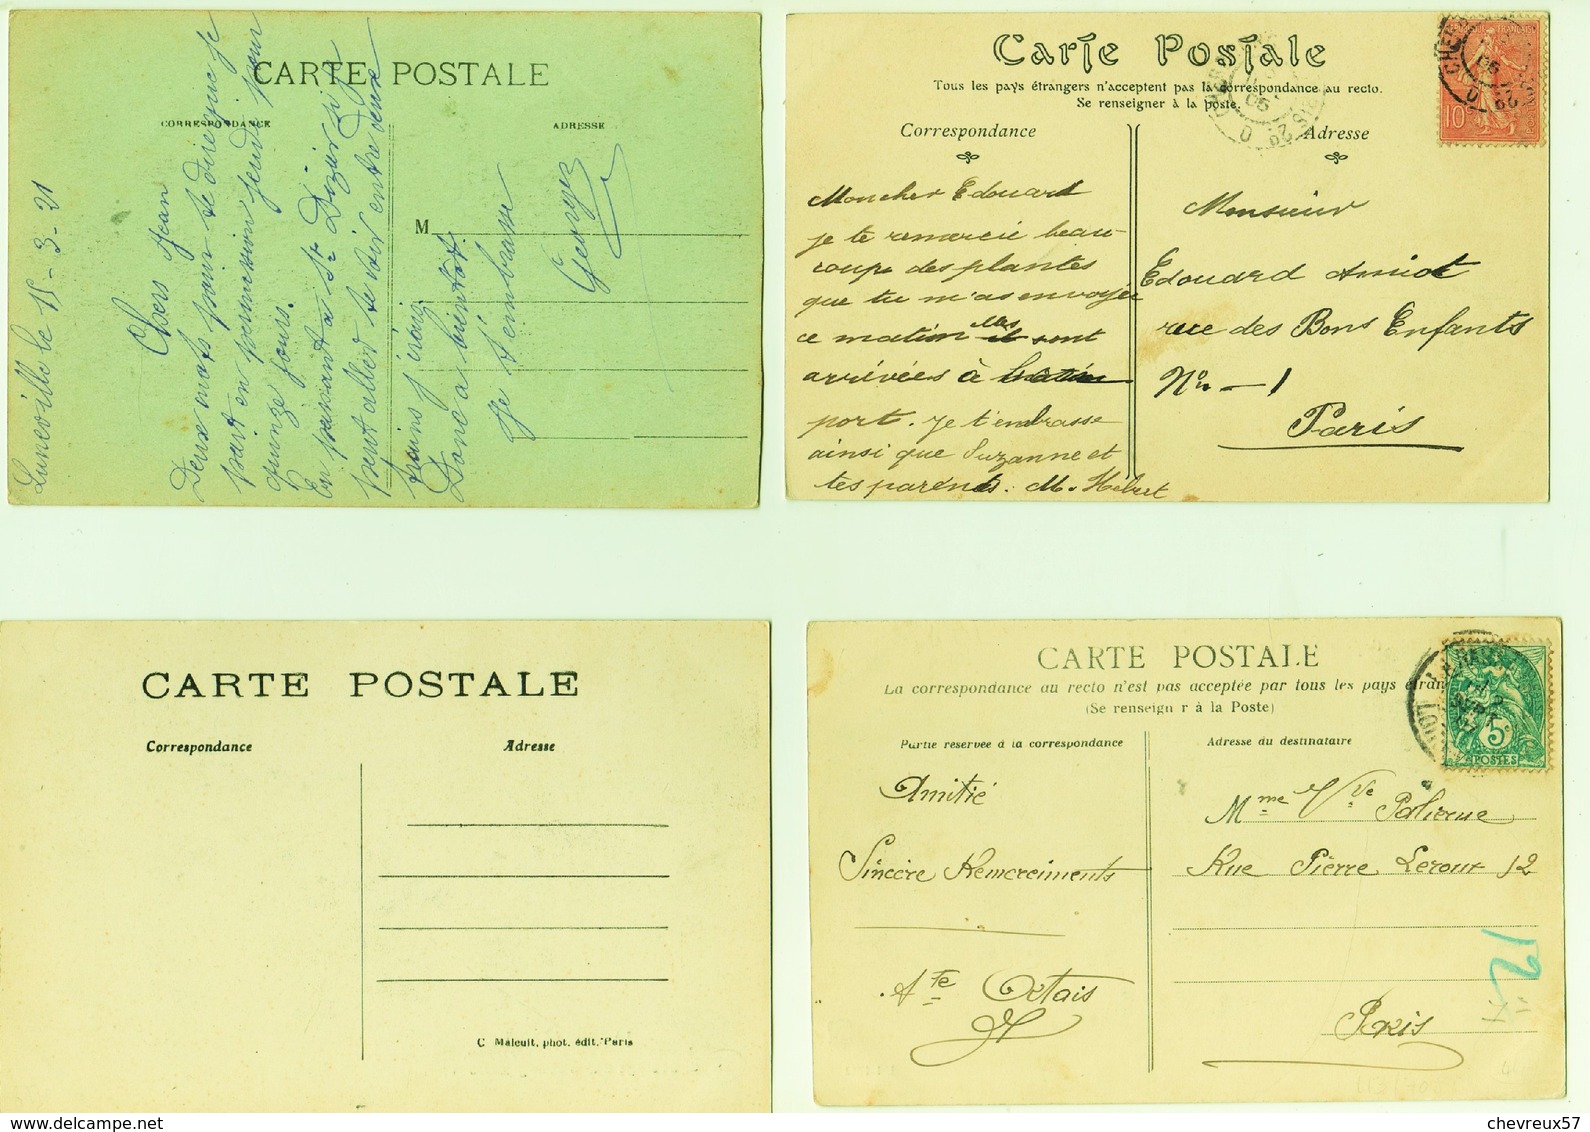 CARTE POSTALE
CORRESPONDANCE
ADRESSE
M
Luneville le 15-3-21
Chers Jean
Deux mots pour te dire que je
part en permission jeudi pour
quinze jours.
En passant à St Dizier si j'
peut aller te voir entre deux
trains j'irai
Donc a bientôt.
Je t'embrasse
Georges
Carte Postale
Tous les pays étrangers n'acceptent pas la correspondance au recto.
Se renseigner à la poste.
Correspondance
Adresse
10
Mon cher Edouard
je te remercie beau-
coup des plantes
que tu m'as envoyée
ce matin elles sont
arrivées à
port. Je t'embrasse
ainsi que Suzanne et
tes parents. M. Hébert
Monsieur
Edouard Amiot
rue des Bons Enfants
No - 1
Paris
CARTE POSTALE
Correspondance
Adresse
C Malcuit, phot. édit. Paris
CARTE POSTALE
La correspondance au recto n'est pas acceptée par tous les pays étran
(Se renseign r à la Poste)
Partie réservée à la correspondance
Adresse du destinataire
5c
POSTES
Amitié
Sincère Remerciements
Mme Vve Palierne
Rue Pierre Leroux 12
Paris
12
chevreux57